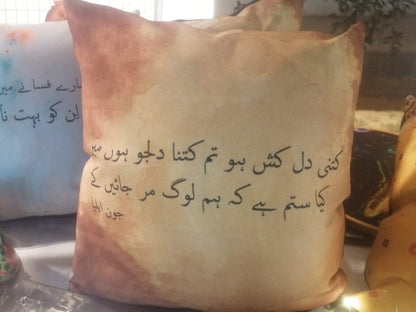 سارے فسانے میں
ان کو بہت نا
کتنی دل کش ہو تم کتنا دلجو ہوں میں
کیا ستم ہے کہ ہم لوگ مر جائیں گے
جون ایلیا